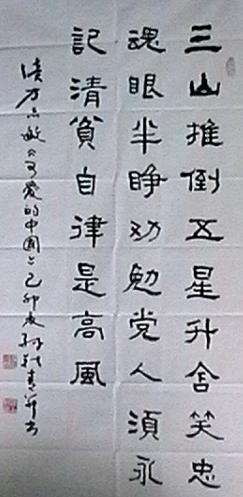 三山推倒五星升含笑忠
魂眼半睁劝勉党人须永
記清貧自律是高風
读方志敏《可爱的中國》己卯夏